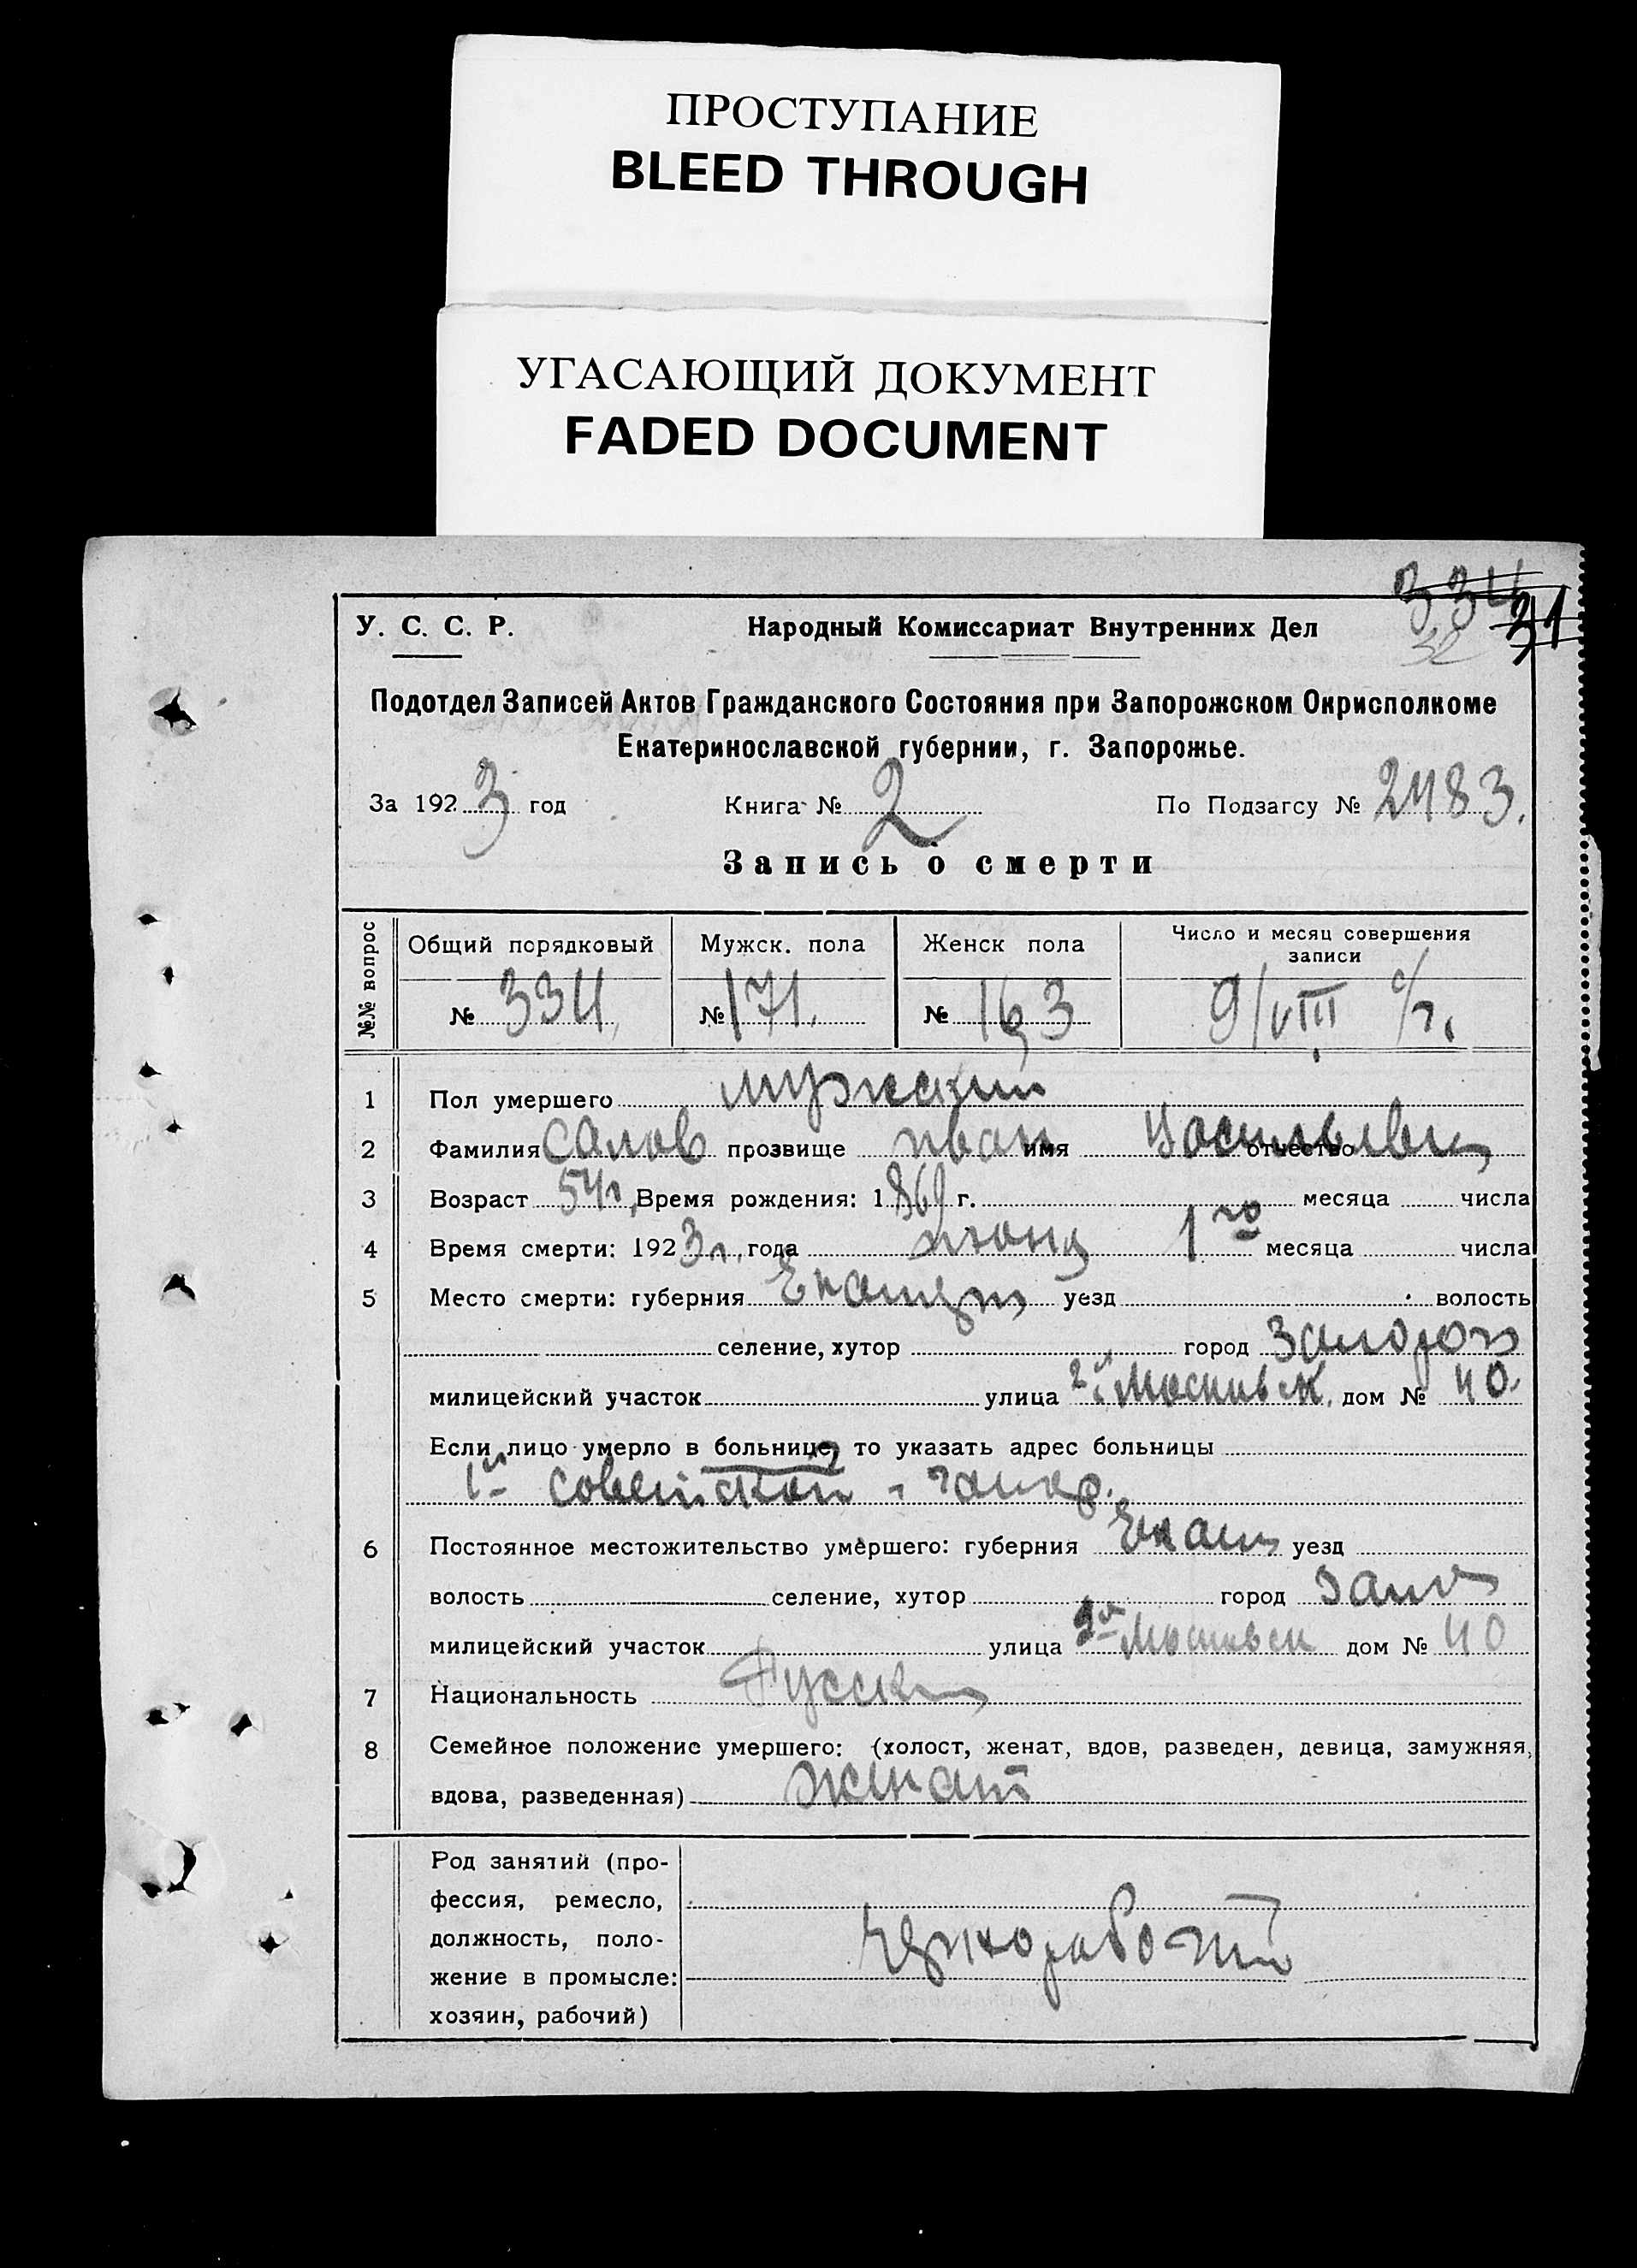 ПРОСТУПАНИЕ
BLEED THROUGH
УГАСАЮЩИЙ ДОКУМЕНТ
FADED DOCUMENT
334 31
32
У. С. С. Р. Народный Комиссариат Внутренних Дел
Подотдел Записей Актов Гражданского Состояния при Запорожском Окрисполкоме
Екатеринославской губернии, г. Запорожье.
За 1923 год Книга № 2 По Подзагсу № 2483.
Запись о смерти
№№ вопрос Общий порядковый Мужск. пола Женск пола Число и месяц совершения записи
№ 334, № 171. № 163 9/VIII с/г.
1 Пол умершего мужской
2 Фамилия прозвище Иван имя отчество
3 Возраст 54 г, Время рождения: 1869 г. месяца числа
4 Время смерти: 1923 г. года 1го месяца числа
5 Место смерти: губерния Екатер уезд волость
селение, хутор город Запорож
милицейский участок улица 2й Московск. дом № 40.
Если лицо умерло в больнице, то указать адрес больницы
1й советской
6 Постоянное местожительство умершего: губерния Екат уезд
волость селение, хутор город Запо
милицейский участок улица 2я Московск дом № 40
7 Национальность Русск
8 Семейное положение умершего: (холост, женат, вдов, разведен, девица, замужняя,
вдова, разведенная) женат
Род занятий (про-
фессия, ремесло,
должность, поло- чернорабочий
жение в промысле:
хозяин, рабочий)